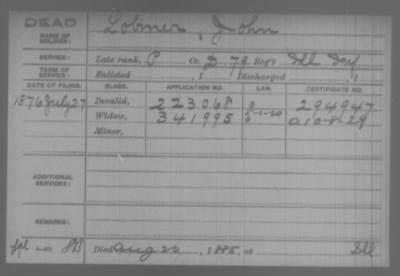 DEAD
NAME OF SOLDIER: Lobmer, John
SERVICE: Late rank, P Co. D, 79 Reg't Ill Inf
TERM OF SERVICE: Enlisted , 1 Discharged , 1
DATE OF FILING. CLASS. APPLICATION NO. LAW. CERTIFICATE NO.
1876 July 27 Invalid, 223068 294947
Widow, 341995 5-1-20 a10-8-29
Minor,
ADDITIONAL SERVICES:
REMARKS:
Died Aug 24, 1885, at Ill